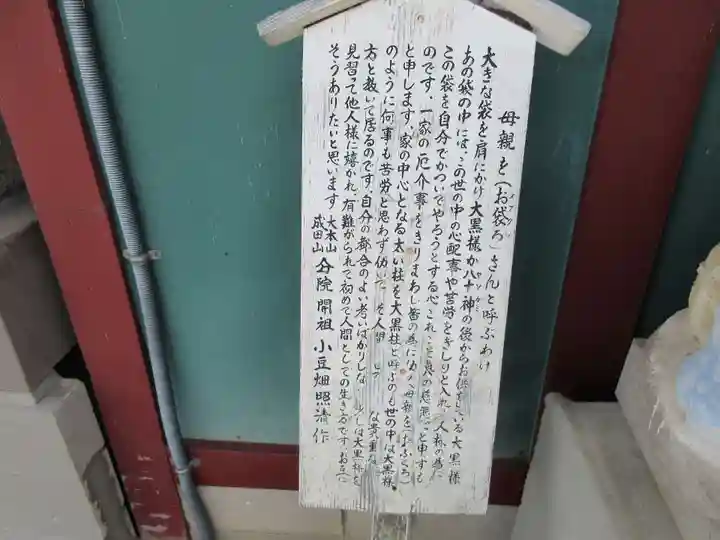 母親を（お袋ろ」さんと呼ぶわけ
大きな袋を肩にかけ大黒様が八十神の後からお供をしている大黒様
あの袋の中には、この世の中の心配事や苦労をぎしりと入れ、人様の為に
この袋を自分でかついでやろうとする心これこそ真の慈悲心と申すも
のです、一家の厄介事をきりまわし皆の為になる、母親を（おふくろ）
と申します、家の中心となる太い柱を大黒柱と呼ぶのも世の中は大黒様
のように何事も苦労と思わず働いて
方と教いて居るのです、自分の都合のよい考いばかりしない、少しは大黒様を
見習って他人様に嬉かれ、有難がられて初めて人間としての生き方です、お互に
そうありたいと思います
大本山
成田山
分院開祖 小豆畑照清作